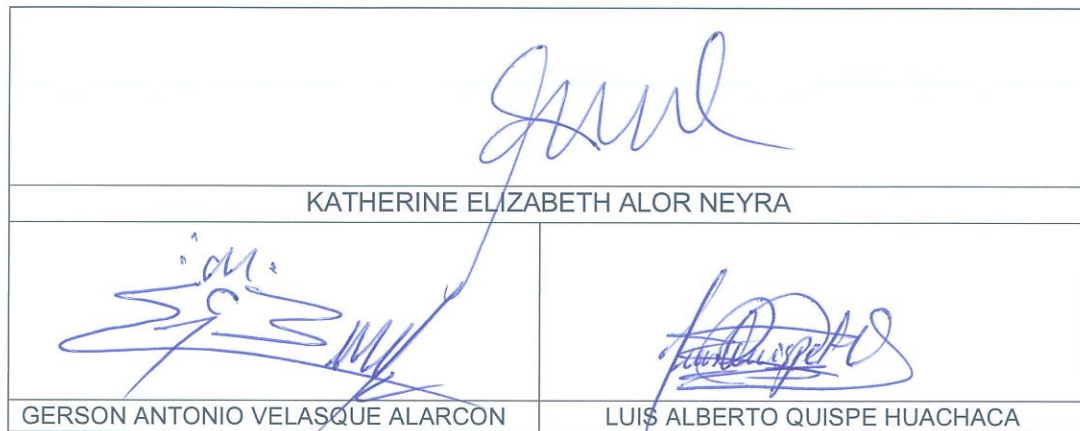 KATHERINE ELIZABETH ALOR NEYRA
GERSON ANTONIO VELASQUE ALARCON
LUIS ALBERTO QUISPE HUACHACA